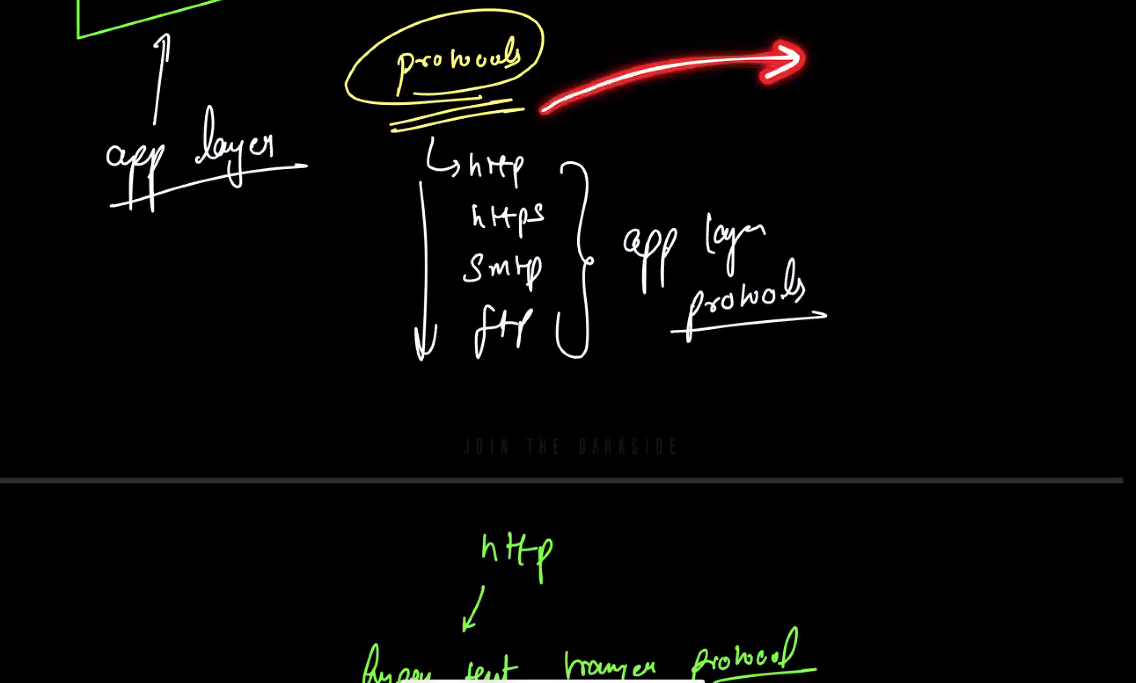 protocols
app layer
http
https
smtp
ftp
app layer
protocols
JOIN THE DARKSIDE
http
hyper text transfer protocol